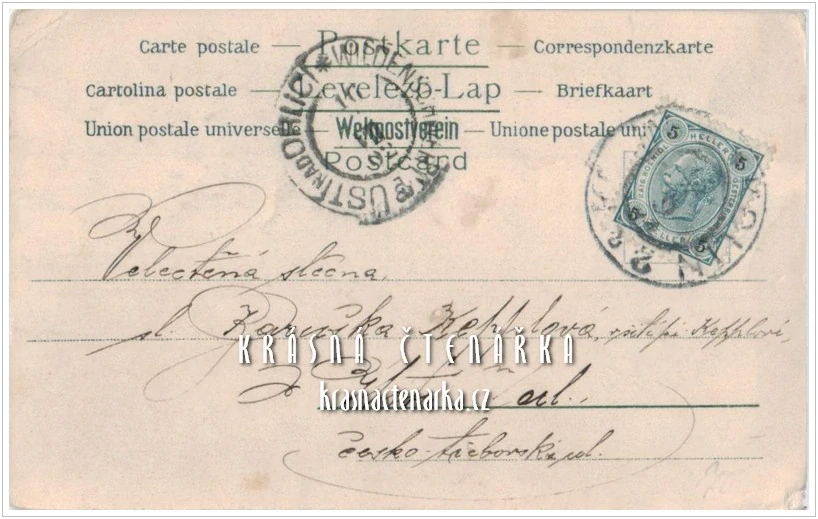 Carte postale — Postkarte — Correspondenzkarte
Cartolina postale — Levelező-Lap — Briefkaart
Union postale universelle — Weltpostverein — Unione postale uni
Postcard
WILDENSCHWERT * ÚSTÍ NAD ORLICÍ
5 HELLER 5
5 HELLER 5
Velectěná slečna,
sl. Keprlová,
KRÁSNÁ ČTENÁŘKA
krasnactenarka.cz
česko-třebovská ul.